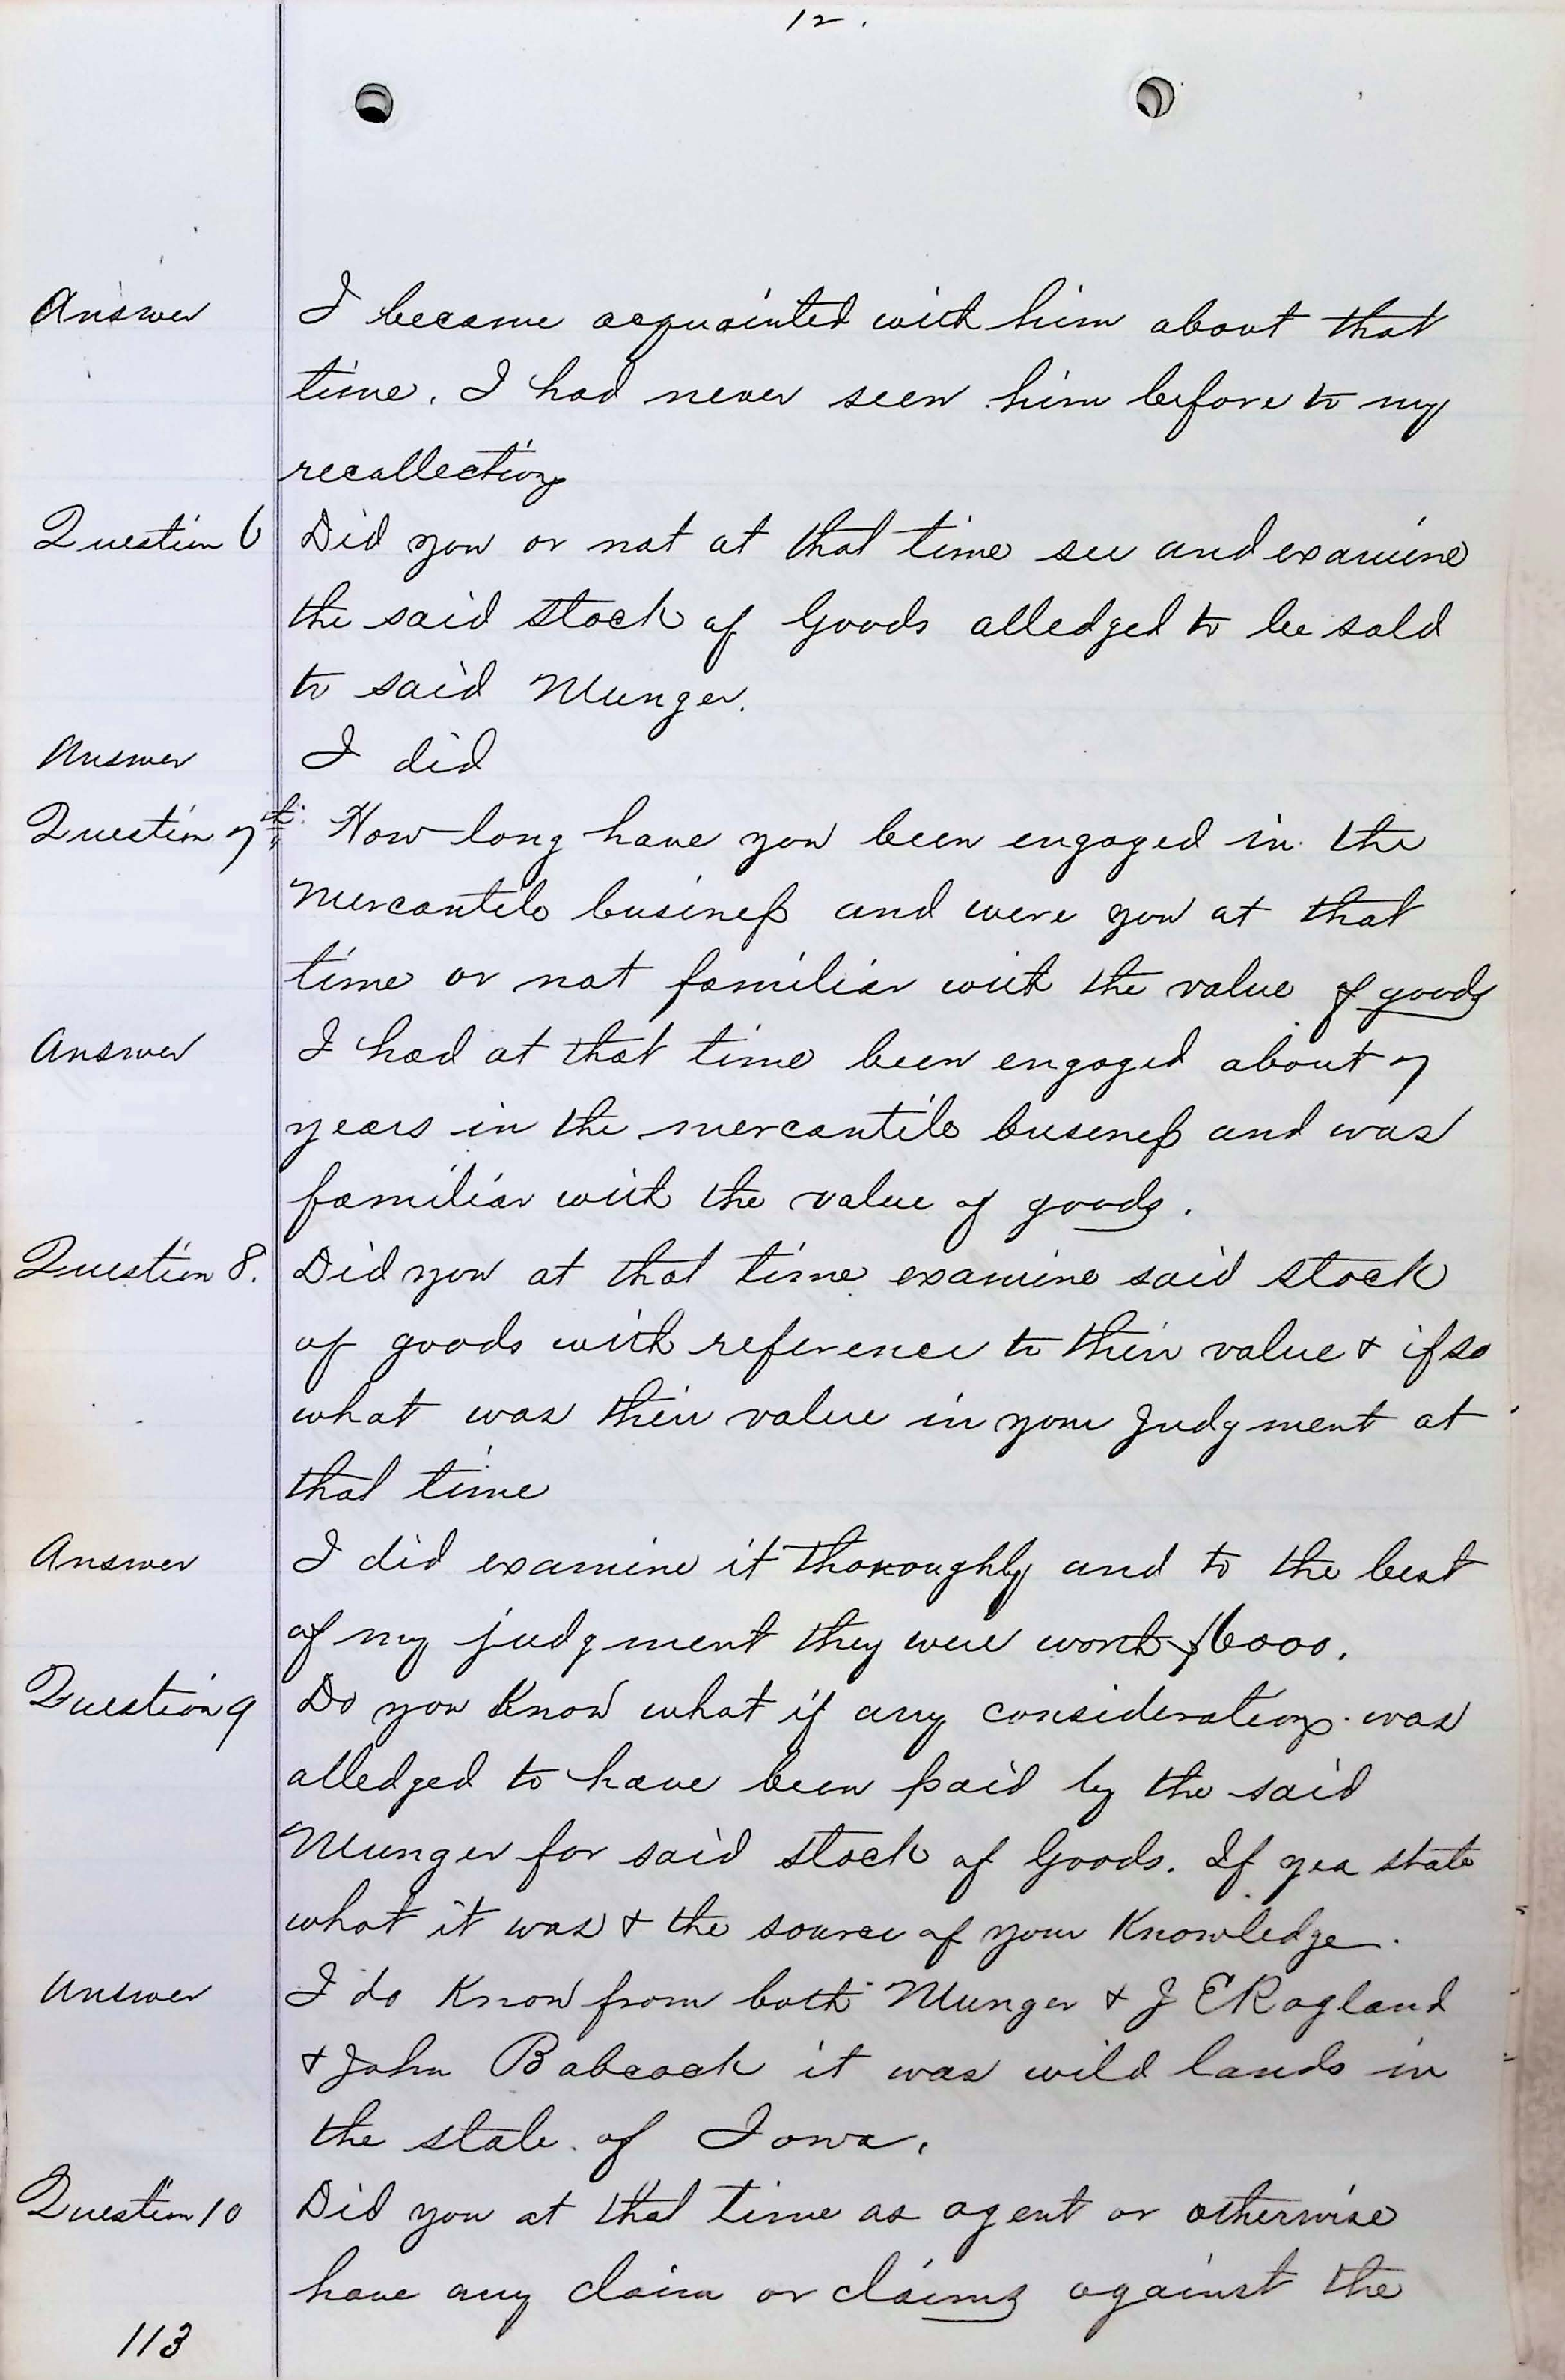 12.
Answer I became acquainted with him about that
time. I had never seen him before to my
recollection
Question 6 Did you or not at that time see and examine
the said stock of Goods alledged to be sold
to said Munger.
Answer I did
Question 7th How long have you been engaged in the
Mercantile business and were you at that
time or not familiar with the value of goods
Answer I had at that time been engaged about 7
years in the mercantile business and was
familiar with the value of goods.
Question 8. Did you at that time examine said stock
of goods with reference to their value & if so
what was their value in your Judgment at
that time
Answer I did examine it thoroughly and to the best
of my judgment they were worth $6000.
Question 9 Do you Know what if any consideration was
alledged to have been paid by the said
Munger for said stock of Goods. If yea state
what it was & the source of your Knowledge.
Answer I do Know from both Munger & J E Ragland
& John Babcock it was wild lands in
the state of Iowa.
Question 10 Did you at that time as agent or otherwise
have any claim or claims against the
113